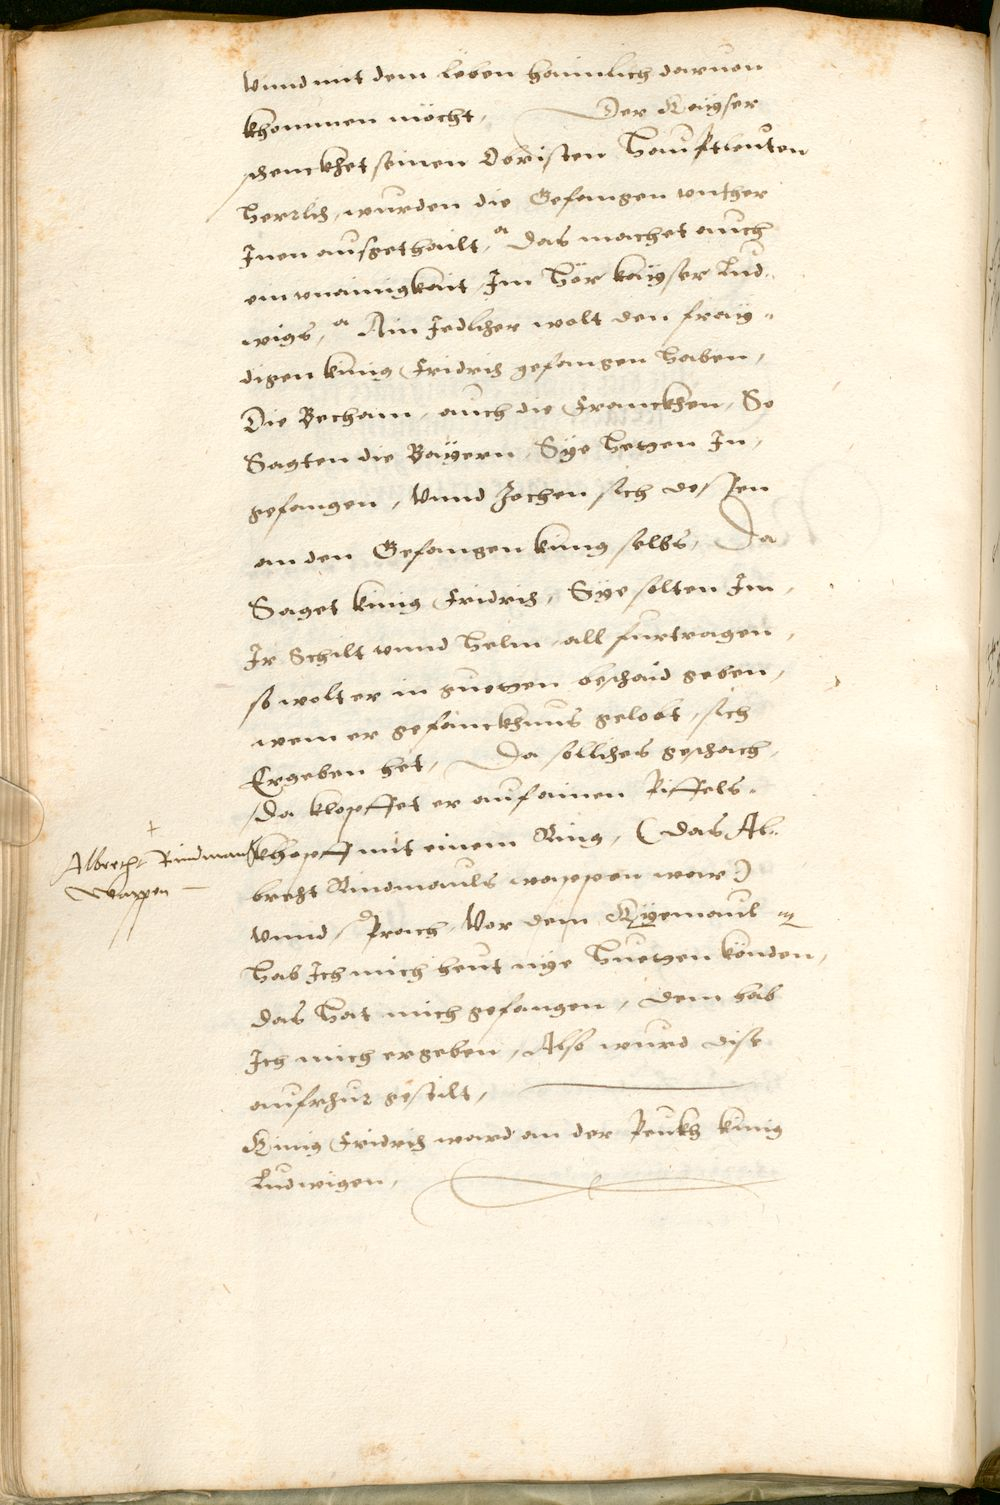 Vnnd mit dem leben haimlich daruon
khommen möcht, Der Kayser
schenckhet seinen Obristen Hauptleuten
herrlich, wurden die Gefangen vnther
Inen ausgethailt, Das machet auch
ein vnainigkait Im Hör kayser Lud-
wigs, Ain Iedlicher wolt den fray-
digen künig Fridrich gefangen haben,
Die Becham, auch die Franckhen, So
Sagten die Bayern, Sye hetzen In
gefangen, Vnnd zochen sich dessen
an den Gefangen kunig selbs, Da
Saget kinig Fridrich, Sye solten Im
Ir Schilt vnnd Helm all furtragen,
so wolt er in guetzen beschaid geben,
wem er gefanckhnus gelobt, sich
Ergeben het, Da sölliches geschach,
Da klopffet er auf ainen Piffels-
khopff mit einem Ring, (Das Al-
brecht Rindmauls wappen war)
Vnnd sprach, Vor dem Kyemaul
hab Ich mich heut nye huetzen könden,
das hat mich gefangen, dem hab
Ich mich ergeben, Also wurd dise
aufrhur gestilt,
Künig Fridrich ward an der Peukh kinig
Ludwigen,
Albrecht Rindmaul
Wappen